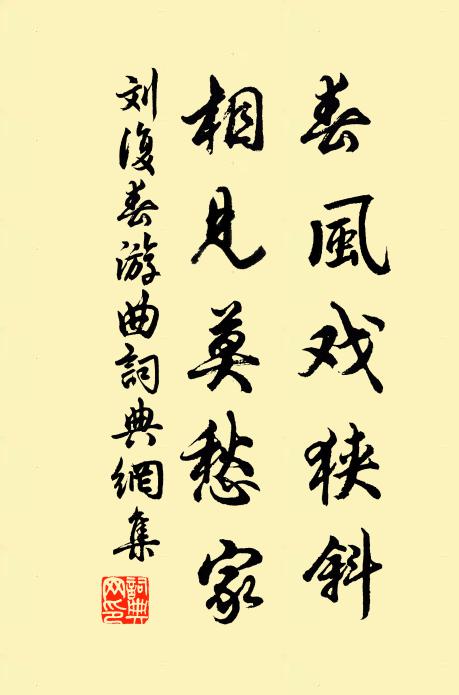 春風戏狭斜
相见莫愁家
刘復春游曲詞典網集
詞典网印